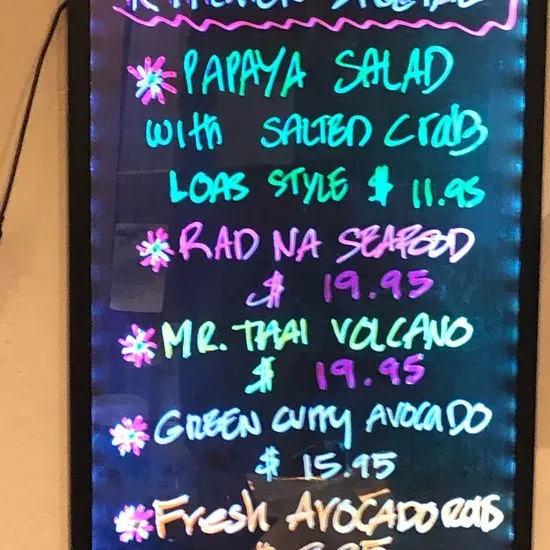 PAPAYA SALAD
with SALTED Crab
LOAS STYLE $ 11.95
RAD NA SEAFOOD
$ 19.95
MR. THAI VOLCANO
$ 19.95
GREEN Curry AVOCADO
$ 15.95
Fresh AVOCADO Rolls